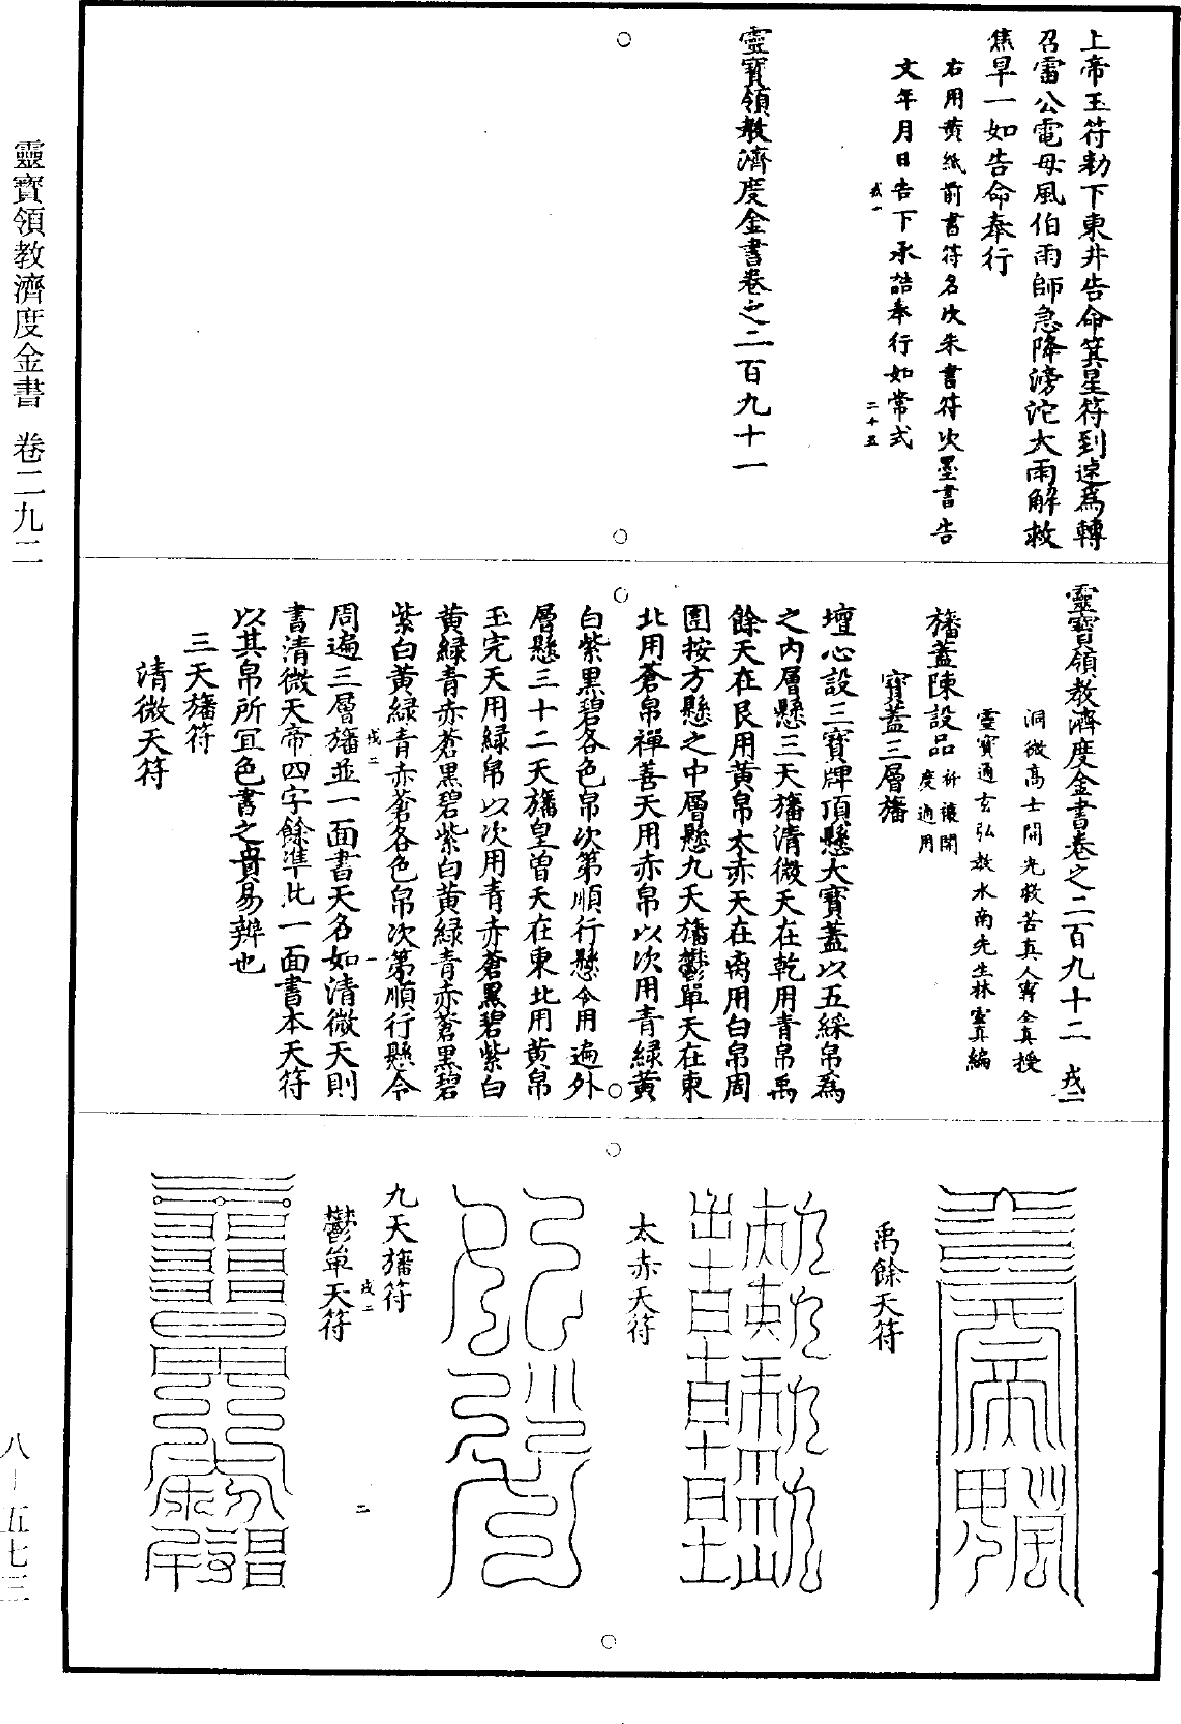 上帝玉符勑下東井告命箕星符到速爲轉
召雷公電母風伯雨師急降滂沱大雨解救
焦旱一如告命奉行
右用黄紙前書符名次朱書符次墨書告
文年月日告下承誥奉行如常式
戎一
二十五
靈寶領教濟度金書卷之二百九十一
靈寶領教濟度金書卷之二百九十二 戎二
洞微高士開光救苦真人甯全真授
靈寶通玄弘教水南先生林靈真編
旛蓋陳設品 祈禳開度通用
寶蓋三層旛
壇心設三寶牌頂懸大寶蓋以五綵帛爲
之内層懸三天旛清微天在乾用青帛禹
餘天在艮用黄帛太赤天在离用白帛周
圍按方懸之中層懸九天旛鬱單天在東
北用蒼帛禪善天用赤帛以次用青緑黄
白紫黒碧各色帛次第順行懸令用遍外
層懸三十二天旛皇曾天在東北用黄帛
玉完天用緑帛以次用青赤蒼黒碧紫白
黄緑青赤蒼黒碧紫白黄緑青赤蒼黒碧
紫白黄緑青赤蒼各色帛次第順行懸令
戎二
一
周遍三層旛並一面書天名如清微天則
書清微天帝四字餘準此一面書本天符
以其帛所宜色書之貴易辨也
三天旛符
清微天符
禹餘天符
太赤天符
九天旛符
戎二
二
鬱單天符
靈寶領教濟度金書 卷二九二
八－五七三